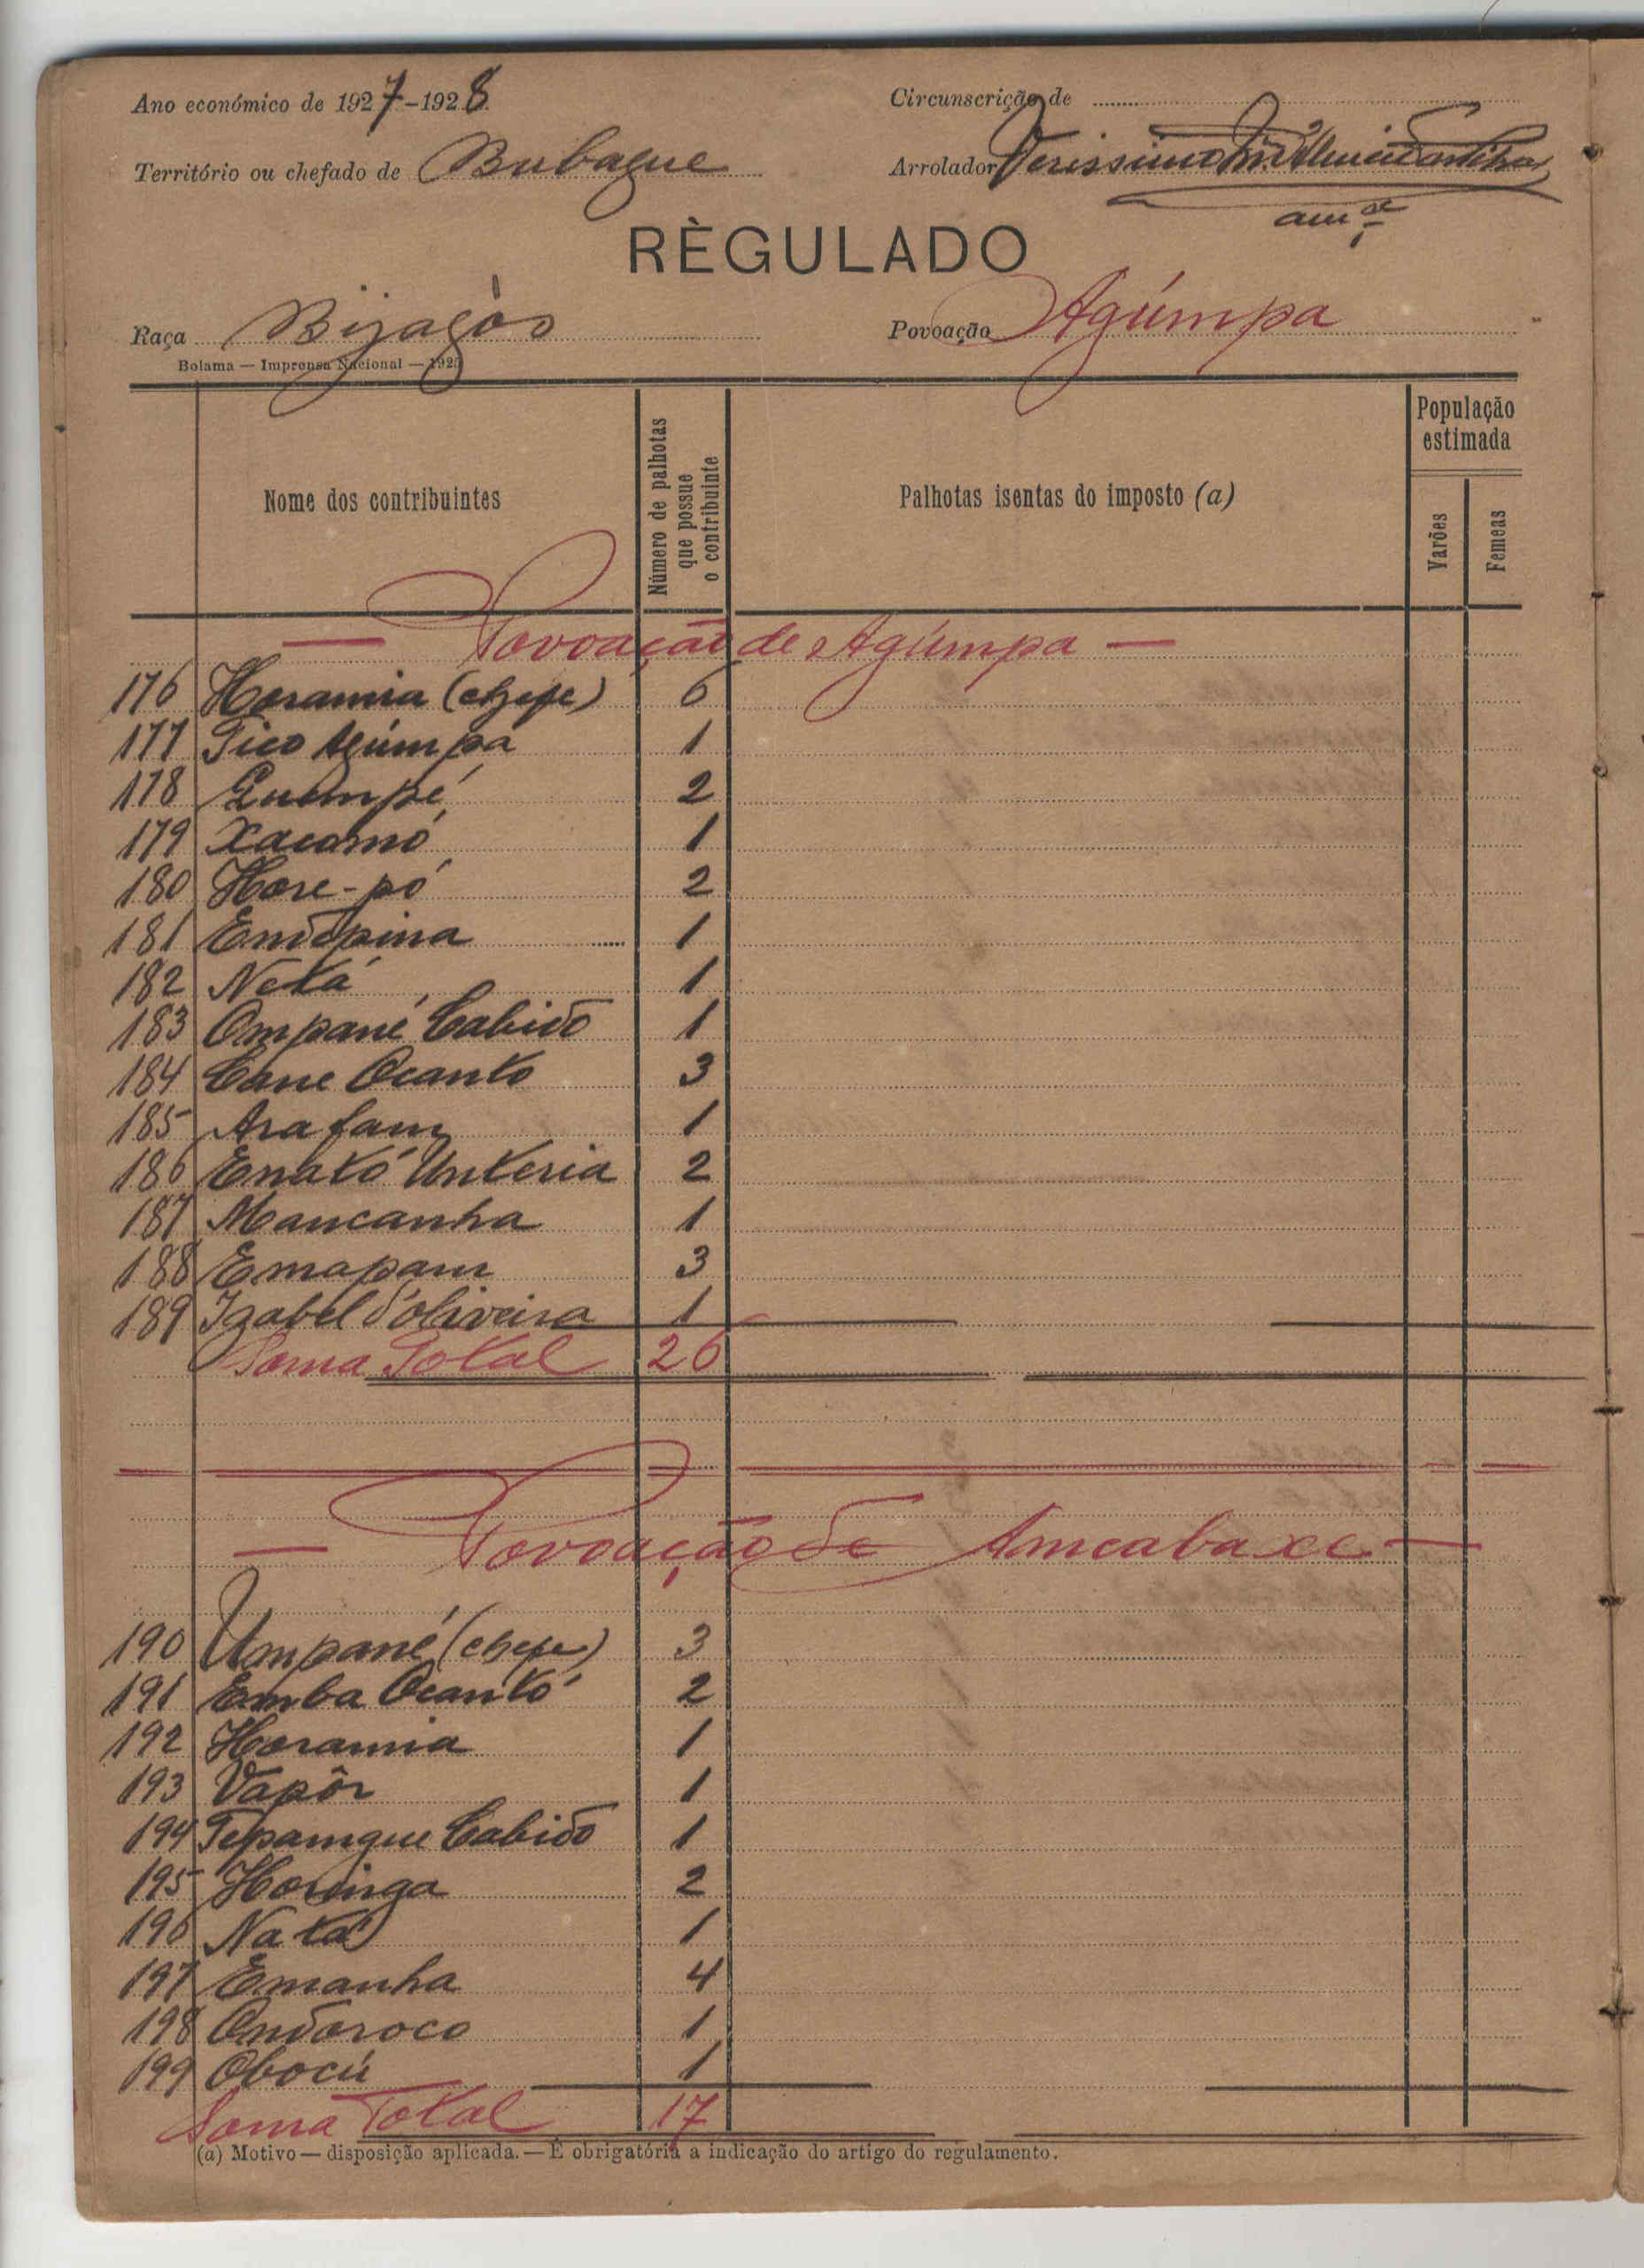 Ano económico de 1927-1928
Circunscrição de
Território ou chefado de Bubaque
Arrolador Verissimo
RÈGULADO
Raça Bijagós
Povoação Agúmpa
Bolama — Imprensa Nacional — 192
Nome dos contribuintes
Número de palhotas que possue o contribuinte
Palhotas isentas do imposto (a)
População estimada
Varões
Femeas
— Povoação de Agúmpa —
176 Horamia (chefe) 6
177 Tico Agúmpa 1
178 Quempé 2
179 Xacomó 1
180 Hore-pó 2
181 Endepina 1
182 Netá 1
183 Ompané Cabido 1
184 Cane Ocanto 3
185 Arafam 1
186 Enató Unteria 2
187 Mancanha 1
188 Emapam 3
189 Izabel d'oliveira 1
Soma Total 26
— Povoação de Ancabaxe —
190 Umpané (chefe) 3
191 Emba Ocantó 2
192 Horamia 1
193 Vapôr 1
194 Tepamque Cabido 1
195 Horinga 2
196 Natá 1
197 Emanha 4
198 Ondoroco 1
199 Obocú 1
Soma Total 17
(a) Motivo — disposição aplicada. — É obrigatória a indicação do artigo do regulamento.